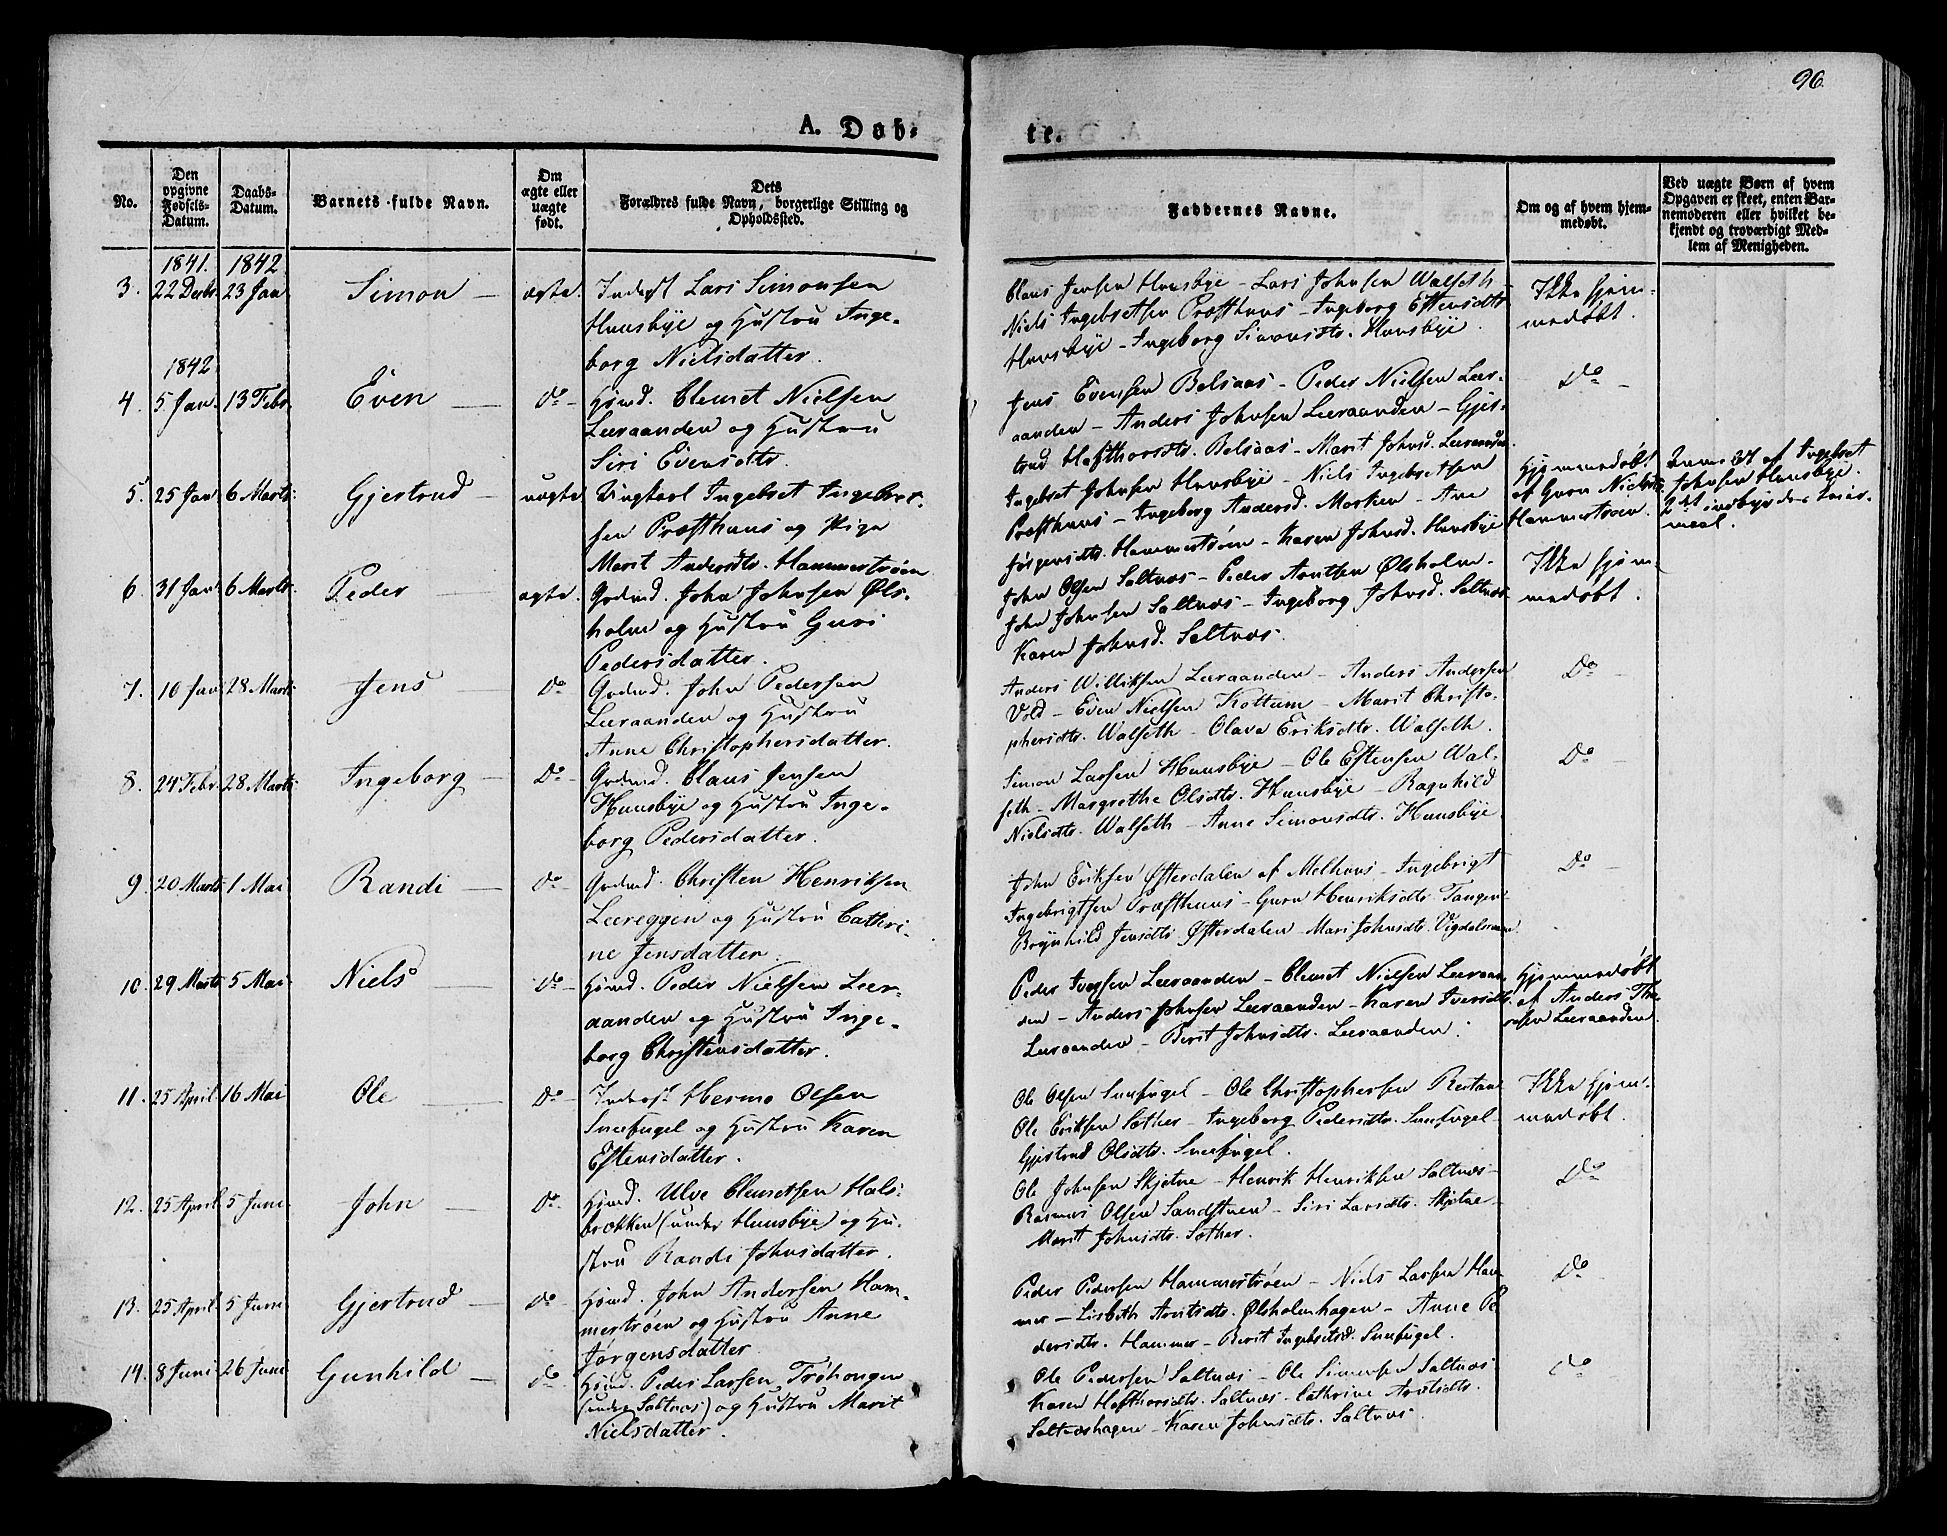 96.
A. Døb-
te.
No.
Den opgivne Fødsels-Datum.
Daabs-Datum.
Barnets fulde Navn.
Om ægte eller uægte født.
Dets Forældres fulde Navn, borgerlige Stilling og Opholdssted.
Faddernes Navne.
Om og af hvem hjem-medøbt.
Ved uægte Børn af hvem Opgaven er skeet, enten Bar-nemoderen eller hvilket be-kjendt og troværdigt Med-lem af Menigheden.
1841. 1842.
3. 22 Decbr. 23 Jan. Simon ægte. Inderst Lars Simonsen
Huusbye og Hustru Inge-
borg Nielsdatter.
Claus Jensen Huusbye - Lars Johnsen Walseth
Niels Ingebretsen Præsthuus - Ingeborg Estensdtr.
Huusbye - Ingeborg Simonsdtr. Huusbye.
Ikke hjem-
medøbt.
1842.
4. 5 Jan. 13 Febr. Even Do Huusmd. Clemet Nielsen
Leeraanden og Hustru
Siri Evensdtr.
Jens Evensen Belsaas - Peder Nielsen Leer-
aanden - Anders Johnsen Leeraanden - Gjer-
trud Hafthorsdtr. Belsaas - Marit Johnsd. Leeraanden.
Do
5. 25 Jan. 6 Marts. Gjertrud uægte Ungkarl Ingebret Ingebret-
sen Præsthuus og Pige
Marit Andersdtr. Hammertrøen
Ingebret Johnsen Huusbye - Niels Ingebretsen
Præsthuus - Ingeborg Andersd. Marken - Ane
Jørgensdtr. Hammertrøen - Karen Johnsd. Huusbye
Hjemmedøbt
af Guru Nielsdtr.
Hammertrøen.
af Ingebret
Johnsen Huusbye.
6. 31 Jan. 6 Marts. Peder ægte. Gaardmd. John Johnsen Øls-
holm og Hustru Guri
Pedersdatter.
John Olsen Saltnæs - Peder Arntsen Ølsholm -
John Johnsen Saltnæs - Ingeborg Johnsd. Saltnæs
Karen Johnsd. Saltnæs.
Ikke hjem-
medøbt.
7. 10 Jan. 28 Marts Jens Do Gaardmd. John Pedersen
Leeraanden og Hustru
Anne Christophersdatter.
Anders Leeraanden - Anders Andersen
Vold - Even Nielsen Kottum - Marit Christo-
phersdtr. Walseth - Olava Eriksdtr. Walseth.
Do
8. 24 Febr. 28 Marts Ingeborg Do Gaardmd. Claus Jensen
Huusbye og Hustru Inge-
borg Pedersdatter.
Simon Larsen Huusbye - Ole Estensen Wal-
seth - Margrethe Olsdtr. Huusbye - Ragnhild
Nielsdtr. Walseth - Anne Simonsdtr. Huusbye.
Do
9. 20 Marts 1 Mai Randi Do Gaardmd. Christen Henriksen
Leereggen og Hustru Cathri-
ne Jensdatter.
John Eriksen Østerdalen af Melhuus - Ingebrigt
Ingebrigtsen Præsthuus - Guru Henriksdtr. Tangen
Brynhild Jensdtr. Østerdalen - Mari Johnsdtr.
Do
10. 29 Marts 5 Mai Niels Do Huusmd. Peder Nielsen Leer-
aanden og Hustru Inge-
borg Christensdatter.
Peder Iversen Leeraanden - Clemet Nielsen Leeraan-
den - Anders Johnsen Leeraanden - Karen Iversdtr.
Leeraanden - Berit Johnsdtr. Leeraanden.
Hjemmedøbt
af Anders
Leeraanden.
11. 25 April 16 Mai Ole Do Inderst Hermo Olsen
Sneefugel og Hustru Karen
Estensdatter.
Ole Olsen Sneefugel - Ole Christophersen
Ole Eriksen Sother - Ingeborg Pedersdtr. Sneefugel -
Gjertrud Olsdtr. Sneefugel.
Ikke hjem-
medøbt.
12. 25 April 5 Juni John Do Huusmd. Ulve Clemetsen Hals-
brækken (under Huusbye) og Hu-
stru Randi Johnsdatter.
Ole Johnsen Skjetne - Henrik Henriksen Saltnæs -
Rasmus Olsen Sandstuen - Siri Larsdtr. Skjetne -
Marit Johnsdtr. Sother.
Do
13. 25 April 5 Juni Gjertrud Do Huusmd. John Andersen Ham-
mertrøen og Hustru Anne
Jørgensdatter
Peder Pedersen Hammertrøen - Niels Larsen Ham-
mer - Lisbeth Arntsdtr. Ølsholmhagen - Anne Pe-
dersdtr. Hammer - Berit Ingebretsd. Sneefugel.
Do
14. 8 Juni 26 Juni Gunhild Do Huusmd. Peder Larsen Trøhougen
(under Saltnæs) og Hustru Marit
Nielsdatter.
Ole Pedersen Saltnæs - Ole Simonsen Saltnæs
Karen Hafthorsdtr. Saltnæs - Cathrine Arntsdtr.
Saltnæshagen - Karen Johnsdtr. Saltnæs.
Do